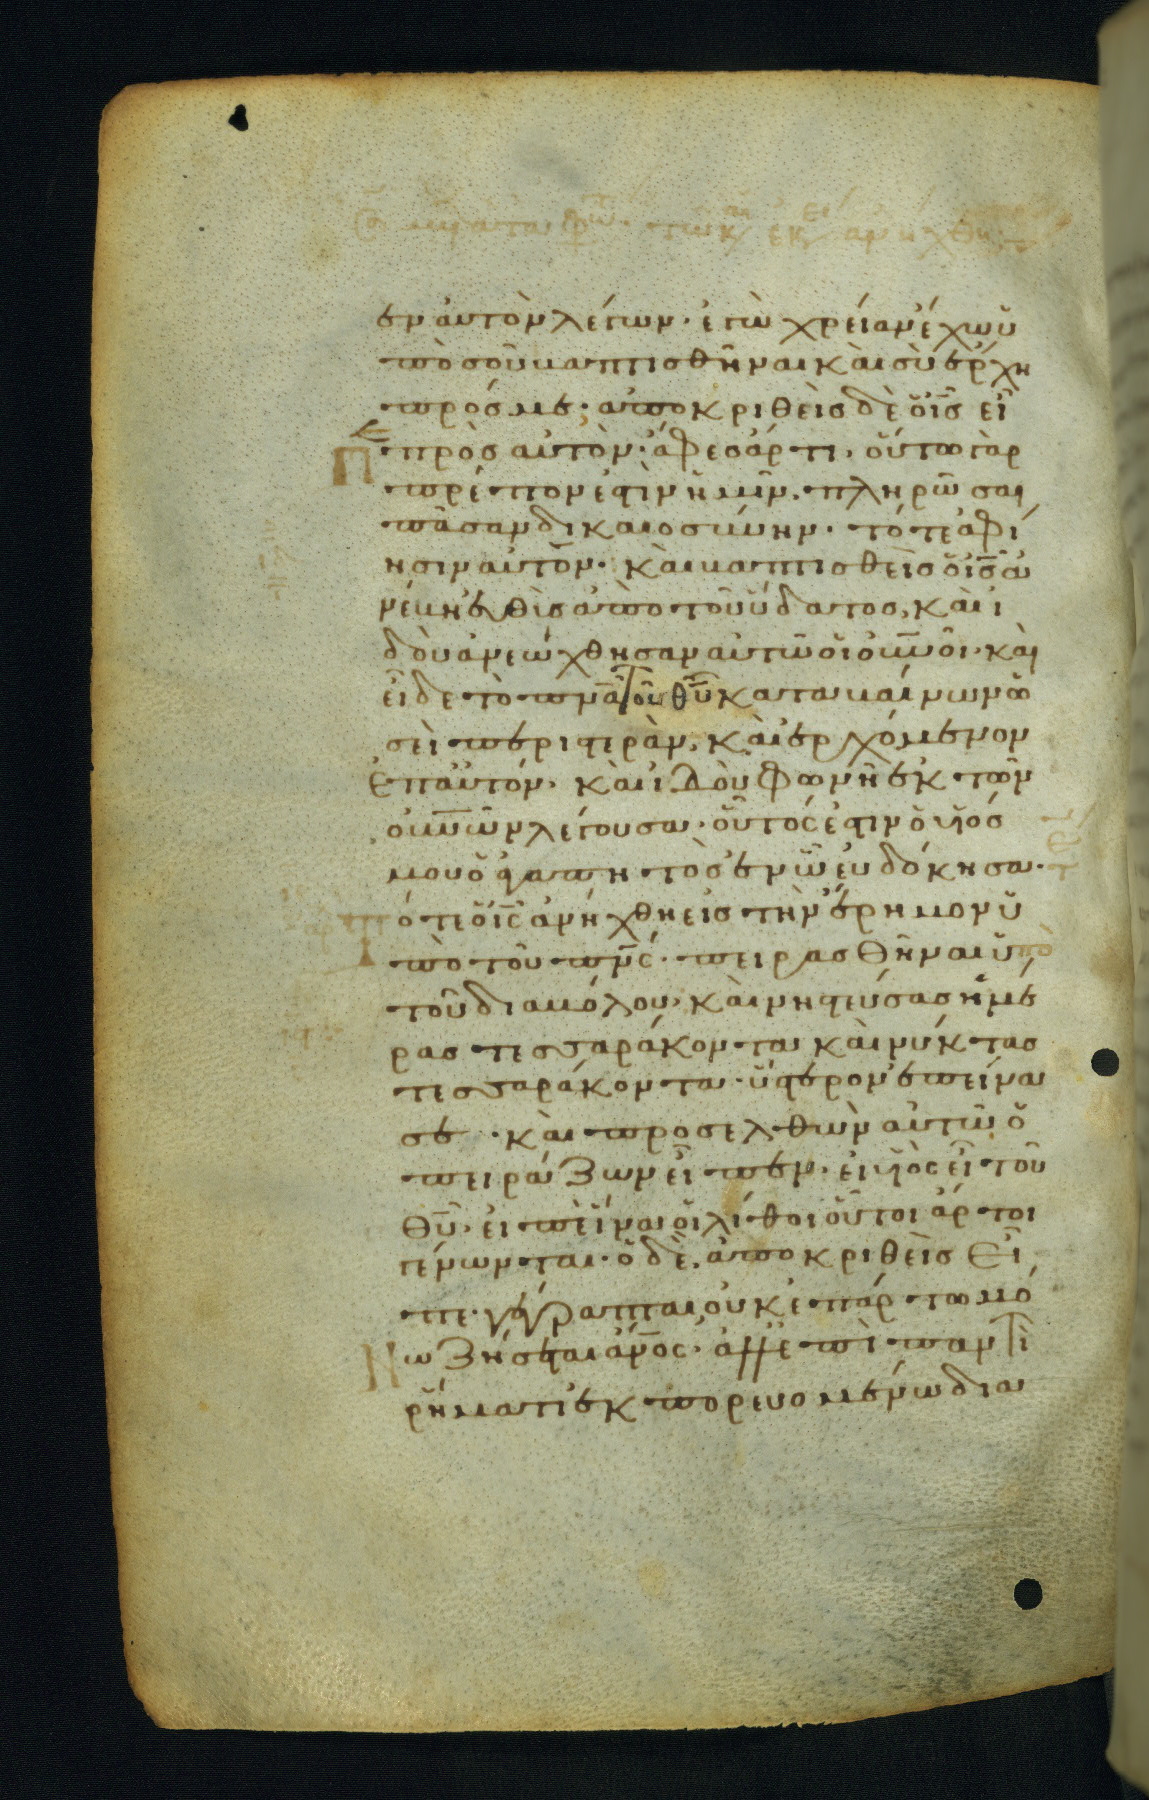 εν αὐτὸν λέγων· ἐγὼ χρείαν ἔχω ὑ
πὸ σοῦ βαπτισθῆναι καὶ σὺ ἔρχη
πρός με· ἀποκριθεὶς δὲ ὁ ι̅ς̅ εἶ
πε πρὸς αὐτὸν· ἄφες ἄρτι· οὕτω γὰρ
πρέπον ἐστὶν ἡμῖν· πληρῶσαι
πᾶσαν δικαιοσύνην· τότε ἀφί
ησιν αὐτόν· καὶ βαπτισθεὶς ὁ ι̅ς̅ ἀ
νέβη εὐθὺς ἀπὸ τοῦ ὕδατος, καὶ ἰ
δοὺ ἀνεώχθησαν αὐτῶ οἱ ο̅υ̅ν̅οι· καὶ
εἶδε τὸ π̅ν̅α̅ τοῦ θ̅υ̅ καταβαίνων ὡ
σεὶ περιστερὰν, καὶ ἐρχόμενον
ἐπ αὐτόν· καὶ ἰδοὺ φωνὴ ἐκ τῶν
ο̅υ̅ν̅ων λέγουσα· οὗτός ἐστιν ὁ υἱός
μου ὁ ἀγαπητὸς ἐν ὧ εὐδόκησα·
Τότε ὁ ι̅ς̅ ἀνήχθη εἰς τὴν ἔρημον ὑ
πὸ τοῦ π̅ν̅ς̅· πειρασθῆναι ὑπὸ
τοῦ διαβόλου· καὶ νηστεύσας ἡμέ
ρας τεσσαράκοντα καὶ νύκτας
τεσσαράκοντα· ὕστερον ἐπείνα
σε· καὶ προσελθὼν αὐτῶ ὁ
πειράζων εἶπεν· εἰ υἱὸς εἶ τοῦ
θ̅υ̅· εἰπὲ ἵνα οἱ λίθοι οὗτοι ἄρτοι
γένωνται· ὁ δὲ ἀποκριθεὶς εἶ
πε· γέγραπται οὐκ ἐπ ἄρτω μό
νω ζήσεται α̅ν̅ο̅ς̅· ἀλλ ἐπὶ παντὶ
ῥήματι ἐκπορευομένω δια